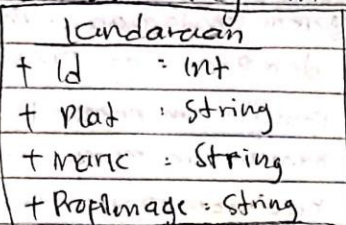 Kendaraan
+ Id : Int
+ Plat : String
+ Merk : String
+ ProfilImage : String